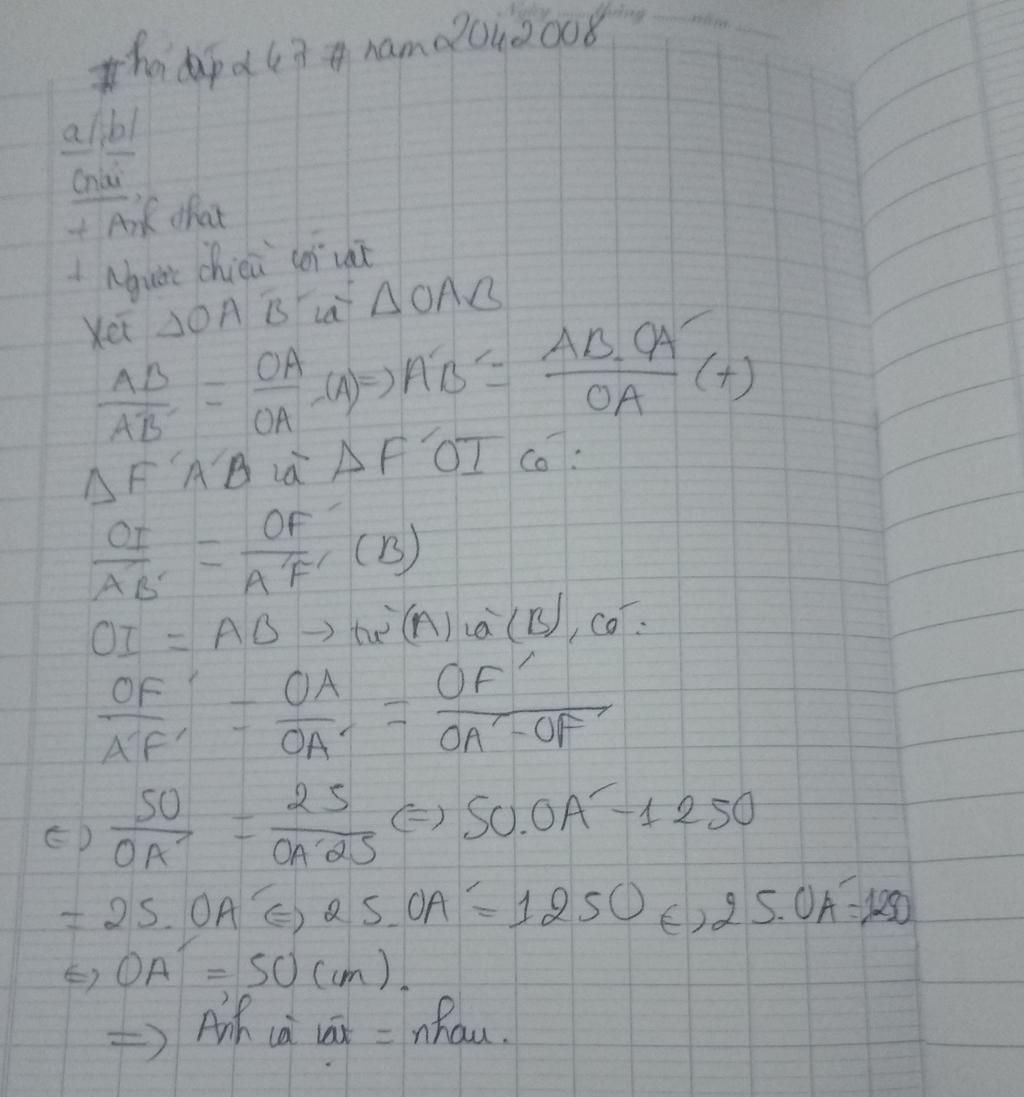 Ngày tháng năm
#hỏi đáp 247 # nam2042008
a/b/
Giải
+ Ảnh thật
+ Ngược chiều với vật
Xét ΔOA'B' và ΔOAB
AB/A'B' = OA/OA' (A) => A'B' = AB.OA'/OA (+)
ΔF'A'B' và ΔF'OI có:
OI/A'B' = OF'/A'F' (B)
OI = AB → từ (A) và (B), có:
OF'/A'F' = OA/OA' = OF'/OA'-OF'
<=> 50/OA' = 25/OA'-25 <=> 50.OA' - 1250
= 25.OA' <=> 25.OA' = 1250 <=> 25.OA' = 1250
<=> OA' = 50 (cm).
=> Ảnh và vật = nhau.